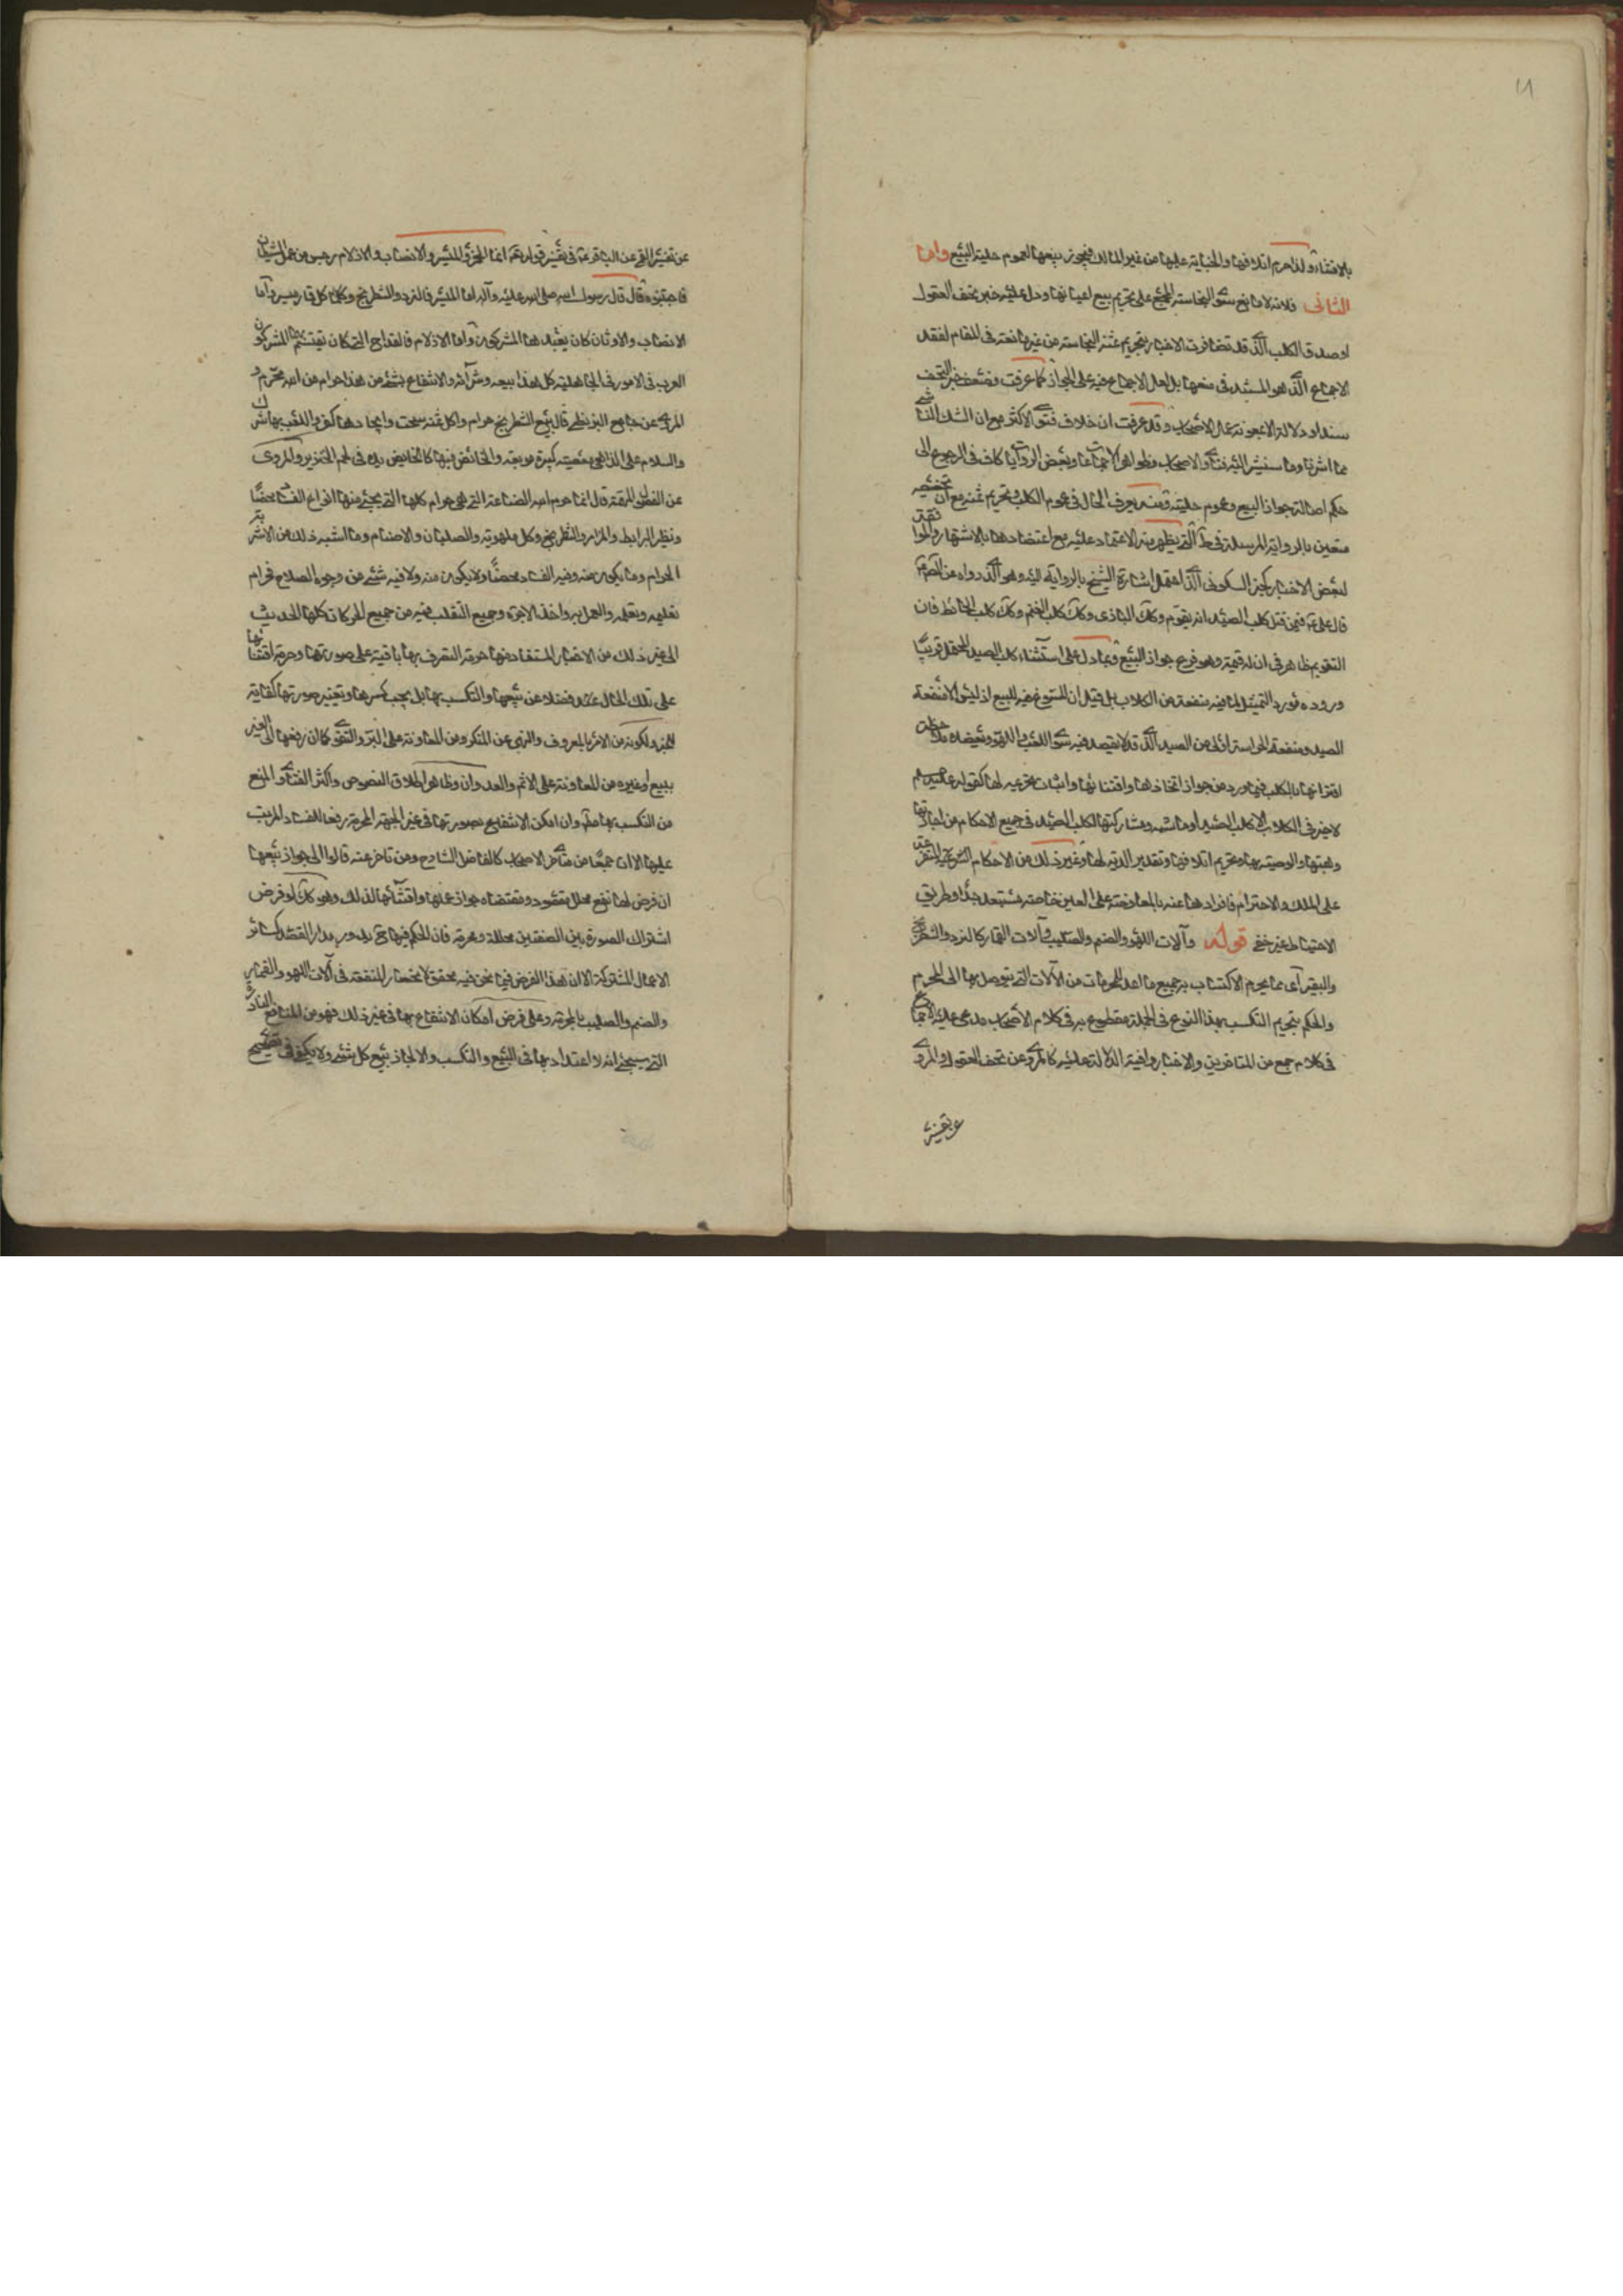 بلا اشارة ولذا حرم اتلافها والجناية عليها من غير المالك فيجوز بيعها لعموم حلية البيع واما
الثانى فلانه لا مانع سوى النجاسة المجمع على تحريم بيع اعيانها ودل عليه خبر تحف العقول
او صدق الكلب الذى قد تضافرت الاخبار بتحريم ثمنه النجاسة من غيرها نعته فى المقام لفقد
الاجماع الذى هو المستند فى منعها بل لعل الاجماع فيه على الجواز كما عرفت وضعف خبر التحف
سندا ودلالة لاعجوبة عمل الاصحاب وقد عرفت ان خلاف فتوى الاكثر مع ان الشك الناشى
مما اشرنا وما سنشير اليه من فتاوى الاصحاب وظواهر الاجماعات وبعض الروايات كاف فى الرجوع الى
حكم اصالة جواز البيع وعموم حليته ومنه يعرف الحال فى عموم الكلب وتحريم ثمنه مع ان تخصيصه
متعين بالرواية المرسلة فى ط التى يظهر منه الاعتماد عليه مع اعتضادها بالاشتهار والموافقة
لبعض الاخبار كخبر السكونى الذى احتمل اشارة الشيخ بالرواية اليه وهو الذى رواه عن الص ع
قال على ع فيمن قتل كلب الصيد انه يقوم وكك البازى وكك كلب الغنم وكك كلب الحائط فان
التقويم ظاهر فى ان له قيمة وهو فرع جواز البيع وبما دل على استثناء كلب الصيد المحتمل قريبا
وروده مورد التمثيل لما فيه منفعة من الكلاب بل قيل ان المسوغ فيه للبيع اذ ليس الا منفعة
الصيد ومنفعة الحراسة اولى من الصيد الذى قد لا يقصد فيه سوى اللعب واللهو ويعضده ملاحظة
اقترانها بالكلب فيما ورد من جواز اتخاذها واقتنائها واثبات نحو عليه لها كقوله عليه السلم
لا خير فى الكلاب الا كلب الصيد او ماشية ومشاركتها لكلب الصيد فى جميع الاحكام من اجارتها
وهبتها والوصية بها وتحريم اتلافها وتقدير الدية لها وغير ذلك من الاحكام الشرعية المتفرعة
على الملك والاحترام فانفرادها عنه بالمعاوضة على العين خاصة مستبعد جدا وطريق
الاحتياط غير خفى قوله وآلات اللهو والصنم والصليب وآلات القمار كالنرد والشطرنج
والبقيرى مما يحرم الاكتساب به جميع ما اعد للحرمات من الآلات التى يتوصل بها الى المحرم
والحكم بتحريم التكسب بهذا النوع فى الجملة مقطوع به فى كلام الاصحاب مدعى عليه الاجماع
فى كلام جمع من المتاخرين والاخبار وافية الدلالة عليه كالمروى عن تحف العقول والمروى
عن تفسير
عن تفسير القمى عن الباقر ع فى تفسير قوله تع انما الخمر والميسر والانصاب والازلام رجس من عمل الشيطان
فاجتنبوه قال قال رسول الله صلى الله عليه وآله اما الميسر فالنرد والشطرنج وكل قمار ميسر واما
الانصاب والاوثان كان يعبدها المشركون واما الازلام فالقداح التى كان يقتسم بها المشركون
العرب فى الامور فى الجاهلية كل هذا بيعه وشرائه والانتفاع بشئ من هذا حرام من الله محرم و
المروى عن جامع البزنطى قال بيع الشطرنج حرام واكل ثمنه سحت واتخاذها كفر واللعب بها شرك
والسلام على اللاهى بها معصية كبيرة موبقة والخائض فيها كالخائض يده فى لحم الخنزير والمروى
عن الفصل المتقدم قال انما حرم الله الصناعة التى هى حرام كلها التى يجئ منها انواع الفساد محضا
ونظير البرابط والمزامير والشطرنج وكل ملهو به والصلبان والاصنام وما اشبه ذلك من الاشربة
الحرام وما يكون منه وفيه الفساد محضا ولا يكون منه ولا فيه شئ من وجوه الصلاح فحرام
تعليمه وتعلمه والعمل به واخذ الاجرة وجميع التقلب فيه من جميع الحركات كلها الحديث
الى غير ذلك من الاخبار المستفاد منها حرمة التصرف بها باقية على صورتها وحرمة اقتنائها
على تلك الحال عنده فضلا عن بيعها والتكسب بها بل يجب كسرها وتغيير صورتها كفاية
للخبر ولكونه من الامر بالمعروف والنهى عن المنكر ومن المعاونة على البر والتقوى كما ان رفعها الى الغير
ببيع او غيره من المعاونة على الاثم والعدوان وظاهر اطلاق النصوص واكثر الفتاوى المنع
من التكسب بها مط وان امكن الانتفاع بصورتها فى غير الجهة المحرمة رفعا للفساد المرتب
عليها الا ان جمعا من متاخر الاصحاب كالفاضل الشارح ومن تاخر عنه قالوا الى جواز بيعها
ان فرض لها نفع محلل مقصود ومقتضاه جواز عملها واقتنائها لذلك وهو كك لو فرض
اشتراك الصورة بين الصفتين محللة ومحرمة فان الحكم فيها ح يدور مدار القصد كسائر
الاعمال المشتركة الا ان هذا الفرض فيما نحن فيه محقق لا يختص للمنفعة فى آلات اللهو والقمار
والصنم والصليب بالمحرمة وعلى فرض امكان الانتفاع بها فى غير ذلك فهو من المنافع النادرة
التى سيجئ انه لا اعتداد بها فى البيع والتكسب والا لجاز بيع كل شئ ولا يكفى فى تصحيح